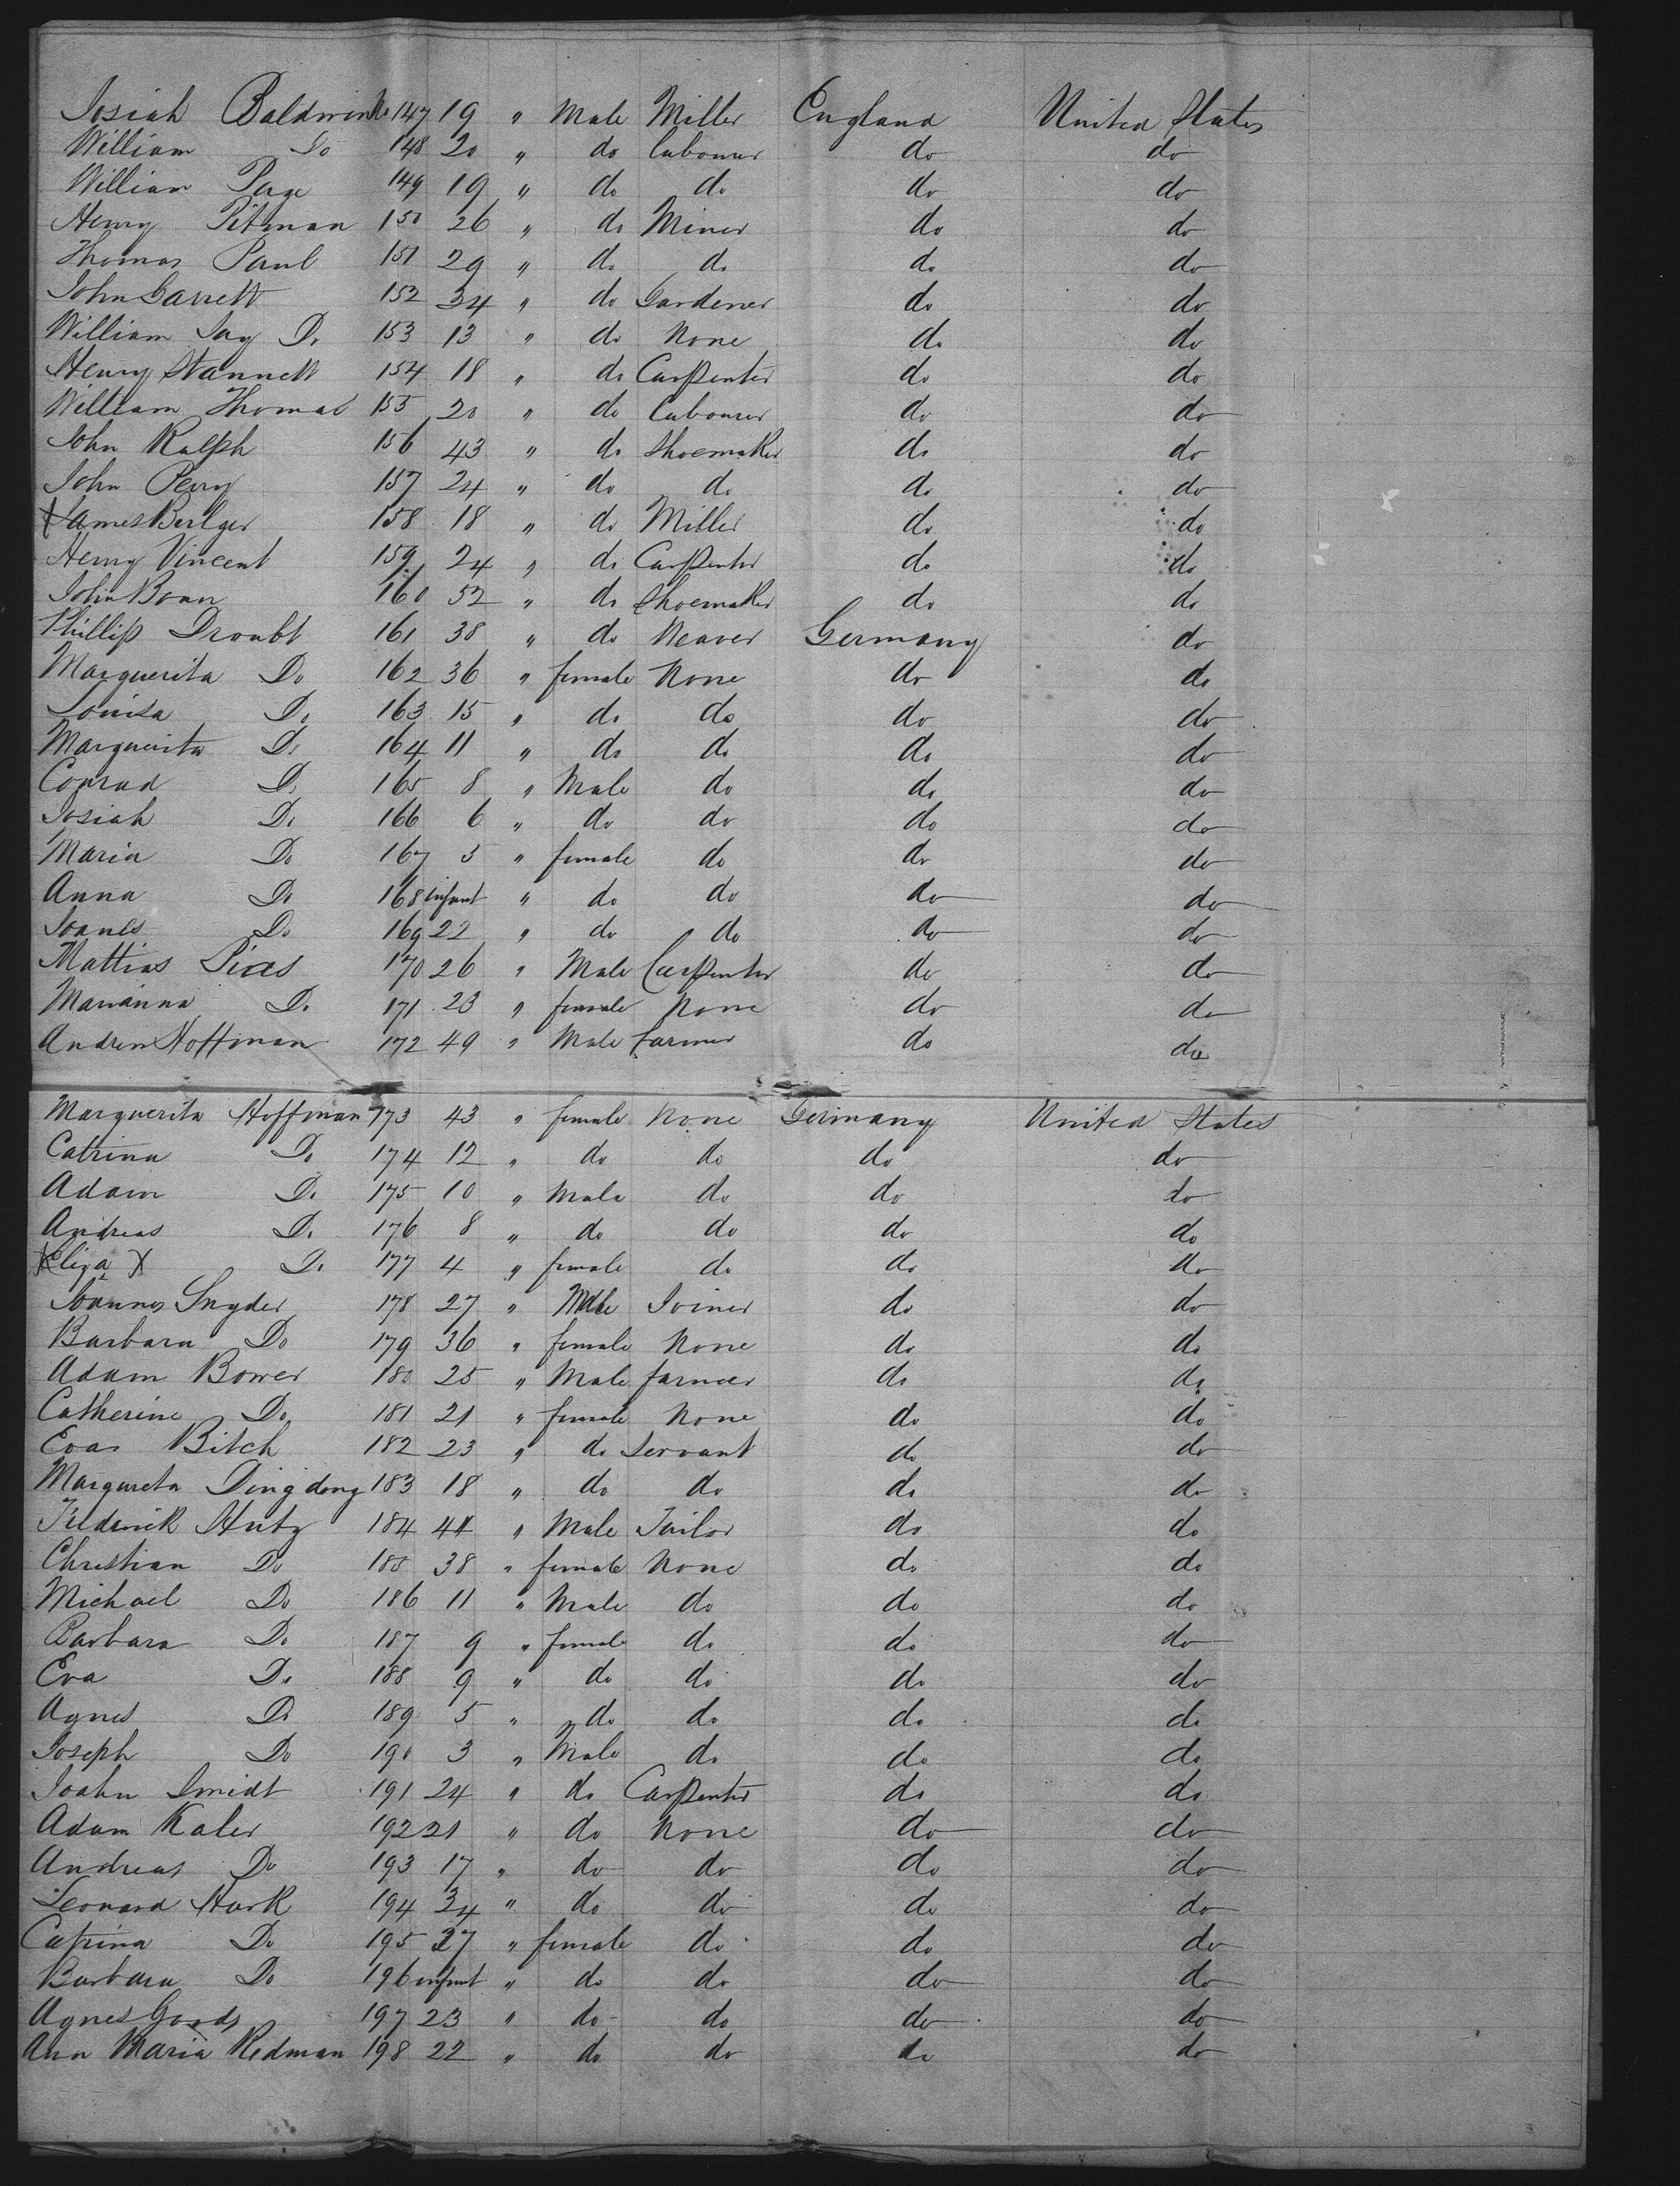 Josiah Baldwin No 147 19 " Male Miller England United States
William Do 148 20 " do Labourer do do
William Page 149 19 " do do do do
Henry Pitman 150 26 " do Miner do do
Thomas Paul 151 29 " do do do do
John Garrett 152 34 " do Gardener do do
William Jay Do 153 13 " do None do do
Henry Stannett 154 18 " do Carpenter do do
William Thomas 155 20 " do Labourer do do
John Ralph 156 43 " do Shoemaker do do
John Perry 157 24 " do do do do
James 158 18 " do Miller do do
Henry Vincent 159 24 " do Carpenter do do
John 160 52 " do Shoemaker do do
Phillip Droubt 161 38 " do Weaver Germany do
Marguerita Do 162 36 " female None do do
Louisa Do 163 15 " do do do do
Marguerita Do 164 11 " do do do do
Conrad Do 165 8 " Male do do do
Josiah Do 166 6 " do do do do
Maria Do 167 5 " female do do do
Anna Do 168 infant " do do do do
Joanes Do 169 22 " do do do do
Mattias Pias 170 26 " Male Carpenter do do
Marianna Do 171 23 " female None do do
Andrew Hoffman 172 49 " Male farmer do do
Marguerita Hoffman 173 43 " female None Germany United States
Catrina Do 174 12 " do do do do
Adam Do 175 10 " Male do do do
Andreas Do 176 8 " do do do do
X Eliza X Do 177 4 " female do do do
Joannes Snyder 178 27 " Male Joiner do do
Barbara Do 179 36 " female None do do
Adam Bower 180 25 " Male farmer do do
Catherine Do 181 21 " female None do do
Eva Bitch 182 23 " do Servant do do
Margareta Dingdong 183 18 " do do do do
Frederick Hutz 184 44 " Male Tailor do do
Christian Do 185 38 " female None do do
Michael Do 186 11 " Male do do do
Barbara Do 187 9 " female do do do
Eva Do 188 9 " do do do do
Agnes Do 189 5 " do do do do
Joseph Do 190 3 " Male do do do
Joahn Smidt 191 24 " do Carpenter do do
Adam Kaler 192 21 " do None do do
Andreas Do 193 17 " do do do do
Leonard Hark 194 34 " do do do do
Catrina Do 195 27 " female do do do
Barbara Do 196 infant " do do do do
Agnes Goods 197 23 " do do do do
Ann Maria Redman 198 22 " do do do do